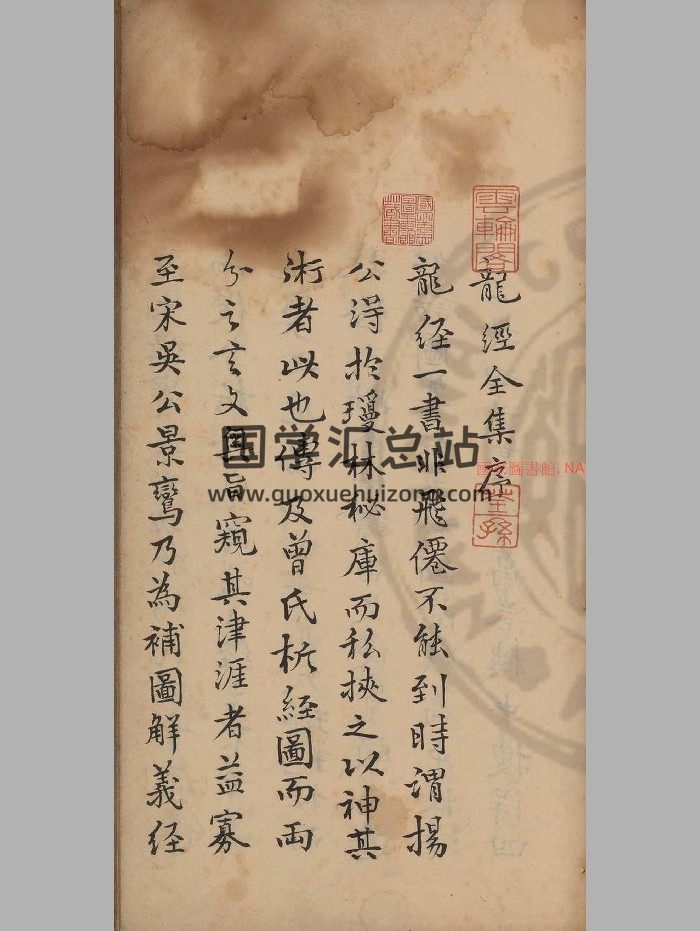 龍經全集序
龍经一書非飛僊不能到時謂揚
公淂於瓊林秘庫而私挾之以神其
術者此也傳及曾氏析經圖而兩
分之言文奥旨窺其津涯者益寡
至宋吳公景鸞乃為補圖解義经
雲輪閣
荃孫
国学汇总站
www.guoxuehuizong.com
圖書館, NA